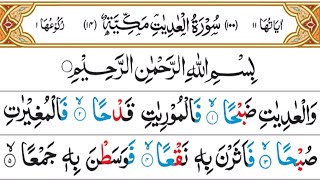 اٰيَاتُهَا ١١ (١٠٠) سُوْرَةُ الْعٰدِيٰتِ مَكِّيَّةٌ (١٤) رُكُوْعُهَا ١
بِسْمِ اللهِ الرَّحْمٰنِ الرَّحِيْمِ
وَالْعٰدِيٰتِ ضَبْحًا ۙ﴿١﴾ فَالْمُوْرِيٰتِ قَدْحًا ۙ﴿٢﴾ فَالْمُغِيْرٰتِ
صُبْحًا ۙ﴿٣﴾ فَاَثَرْنَ بِهٖ نَقْعًا ۙ﴿٤﴾ فَوَسَطْنَ بِهٖ جَمْعًا ۙ﴿٥﴾